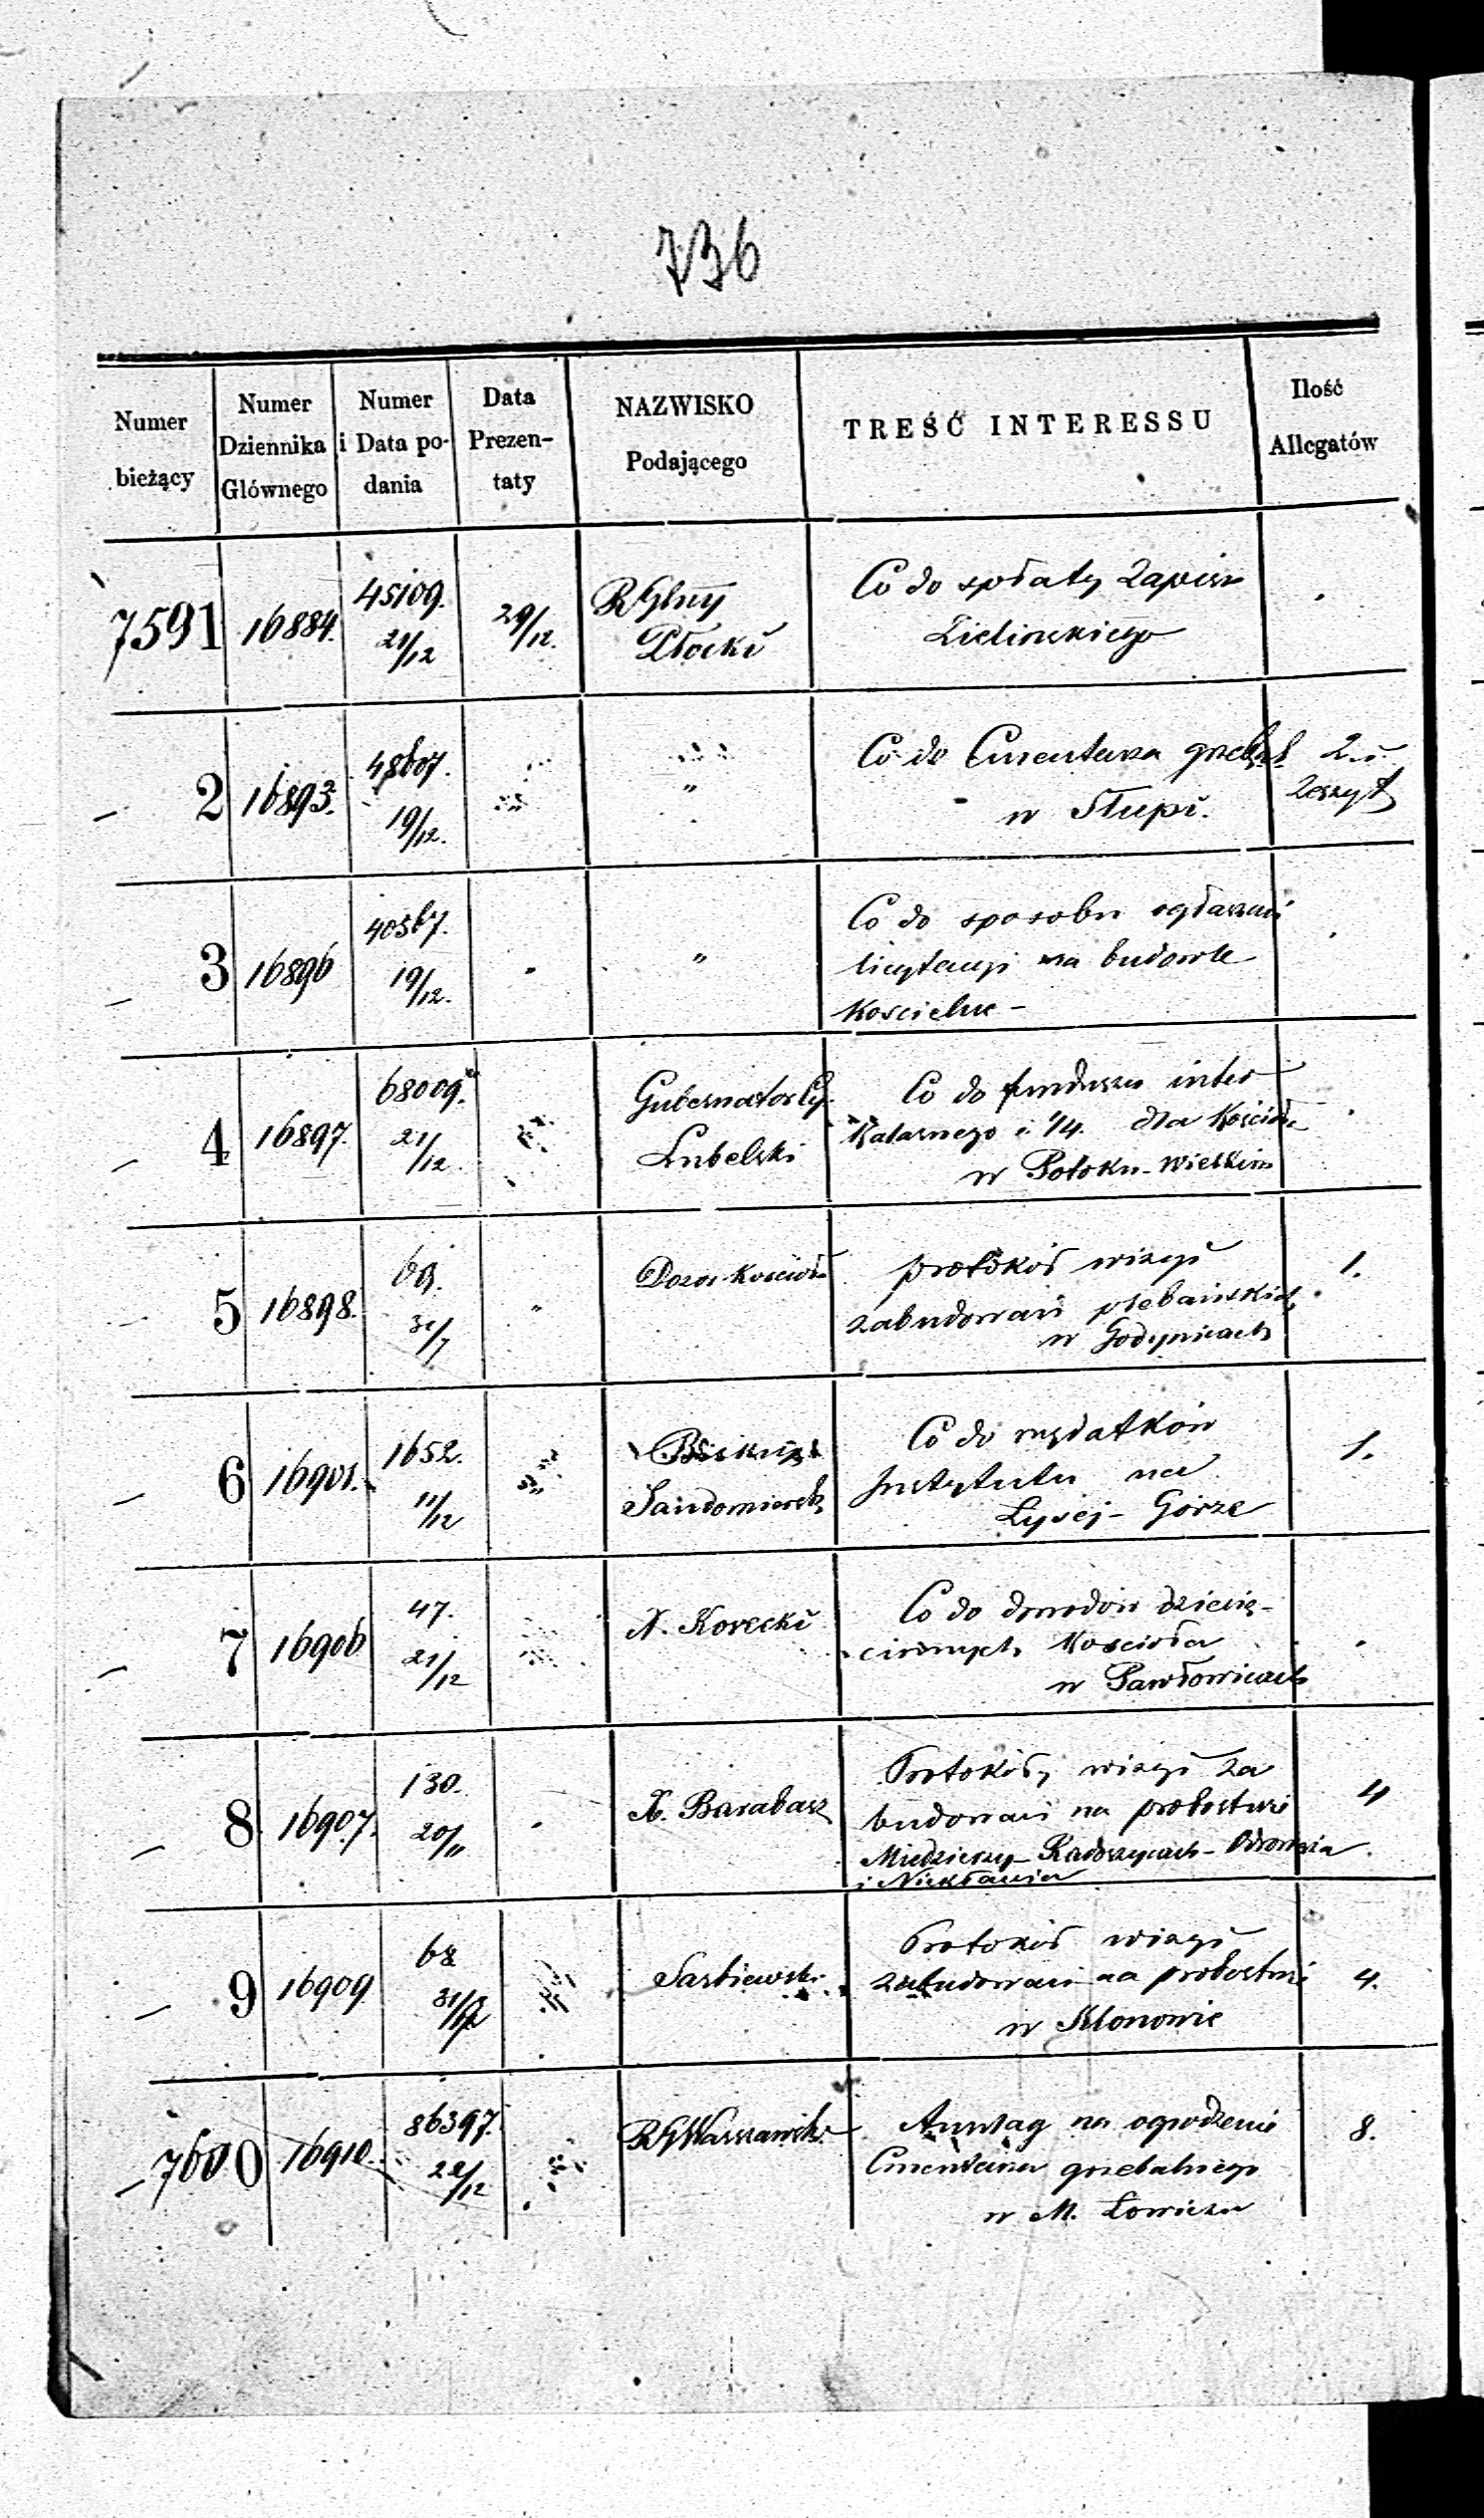 736
Numer bieżący
Numer Dziennika Głównego
Numer i Data podania
Data Prezentaty
NAZWISKO Podającego
TREŚĆ INTERESSU
Ilość Allegatów
7591 16884. 45109. 21/12 29/12. RGlny Płocki
Co do spłaty Zapisu
Zielinskiego
2 16893. 48607. 19/12. " "
Co do Cmentarza grzeb.
w Słupi.
2. i Zeszyt
3 16896 40567. 19/12. "
Co do sposobu ogłaszań
licytacyi na budowle
Kościelne -
4 16897. 68009. 21/12 Gubernator Cy. Lubelski
Co do funduszu inter
kalarnego i 1/4. dla Kościoła
w Potoku-Wielkim
5 16898. 69. 31/7 " Dozor Kościoła
protokół wizyi
zabudowań plebańskich
w Godynicach
1.
6 16901. 1652. 11/12 Biskup Sandomiersk
Co do wydatków
Instytutu na
Łysej-Górze
1.
7 16906 47. 21/12 X. Korecki
Co do dowodów dziesię-
cinnych Kościoła
w Pawłowicach
8 16907. 130. 20/11 X. Barabasz
Protokóły wizyi za
budowań na probostwie
Miedzierzy- Radoszycach- Odrowąża
i Niekłania
4
9 16909 68 Sarbiewski
Protokół wizyi
zabudowań na probostwie
w Klonowie
4.
7600 16910. 86397. 22/12 RGWarszawski
Anszlag na ogrodzenie
Cmentarza grzebalnego
w M. Łowiczu
8.